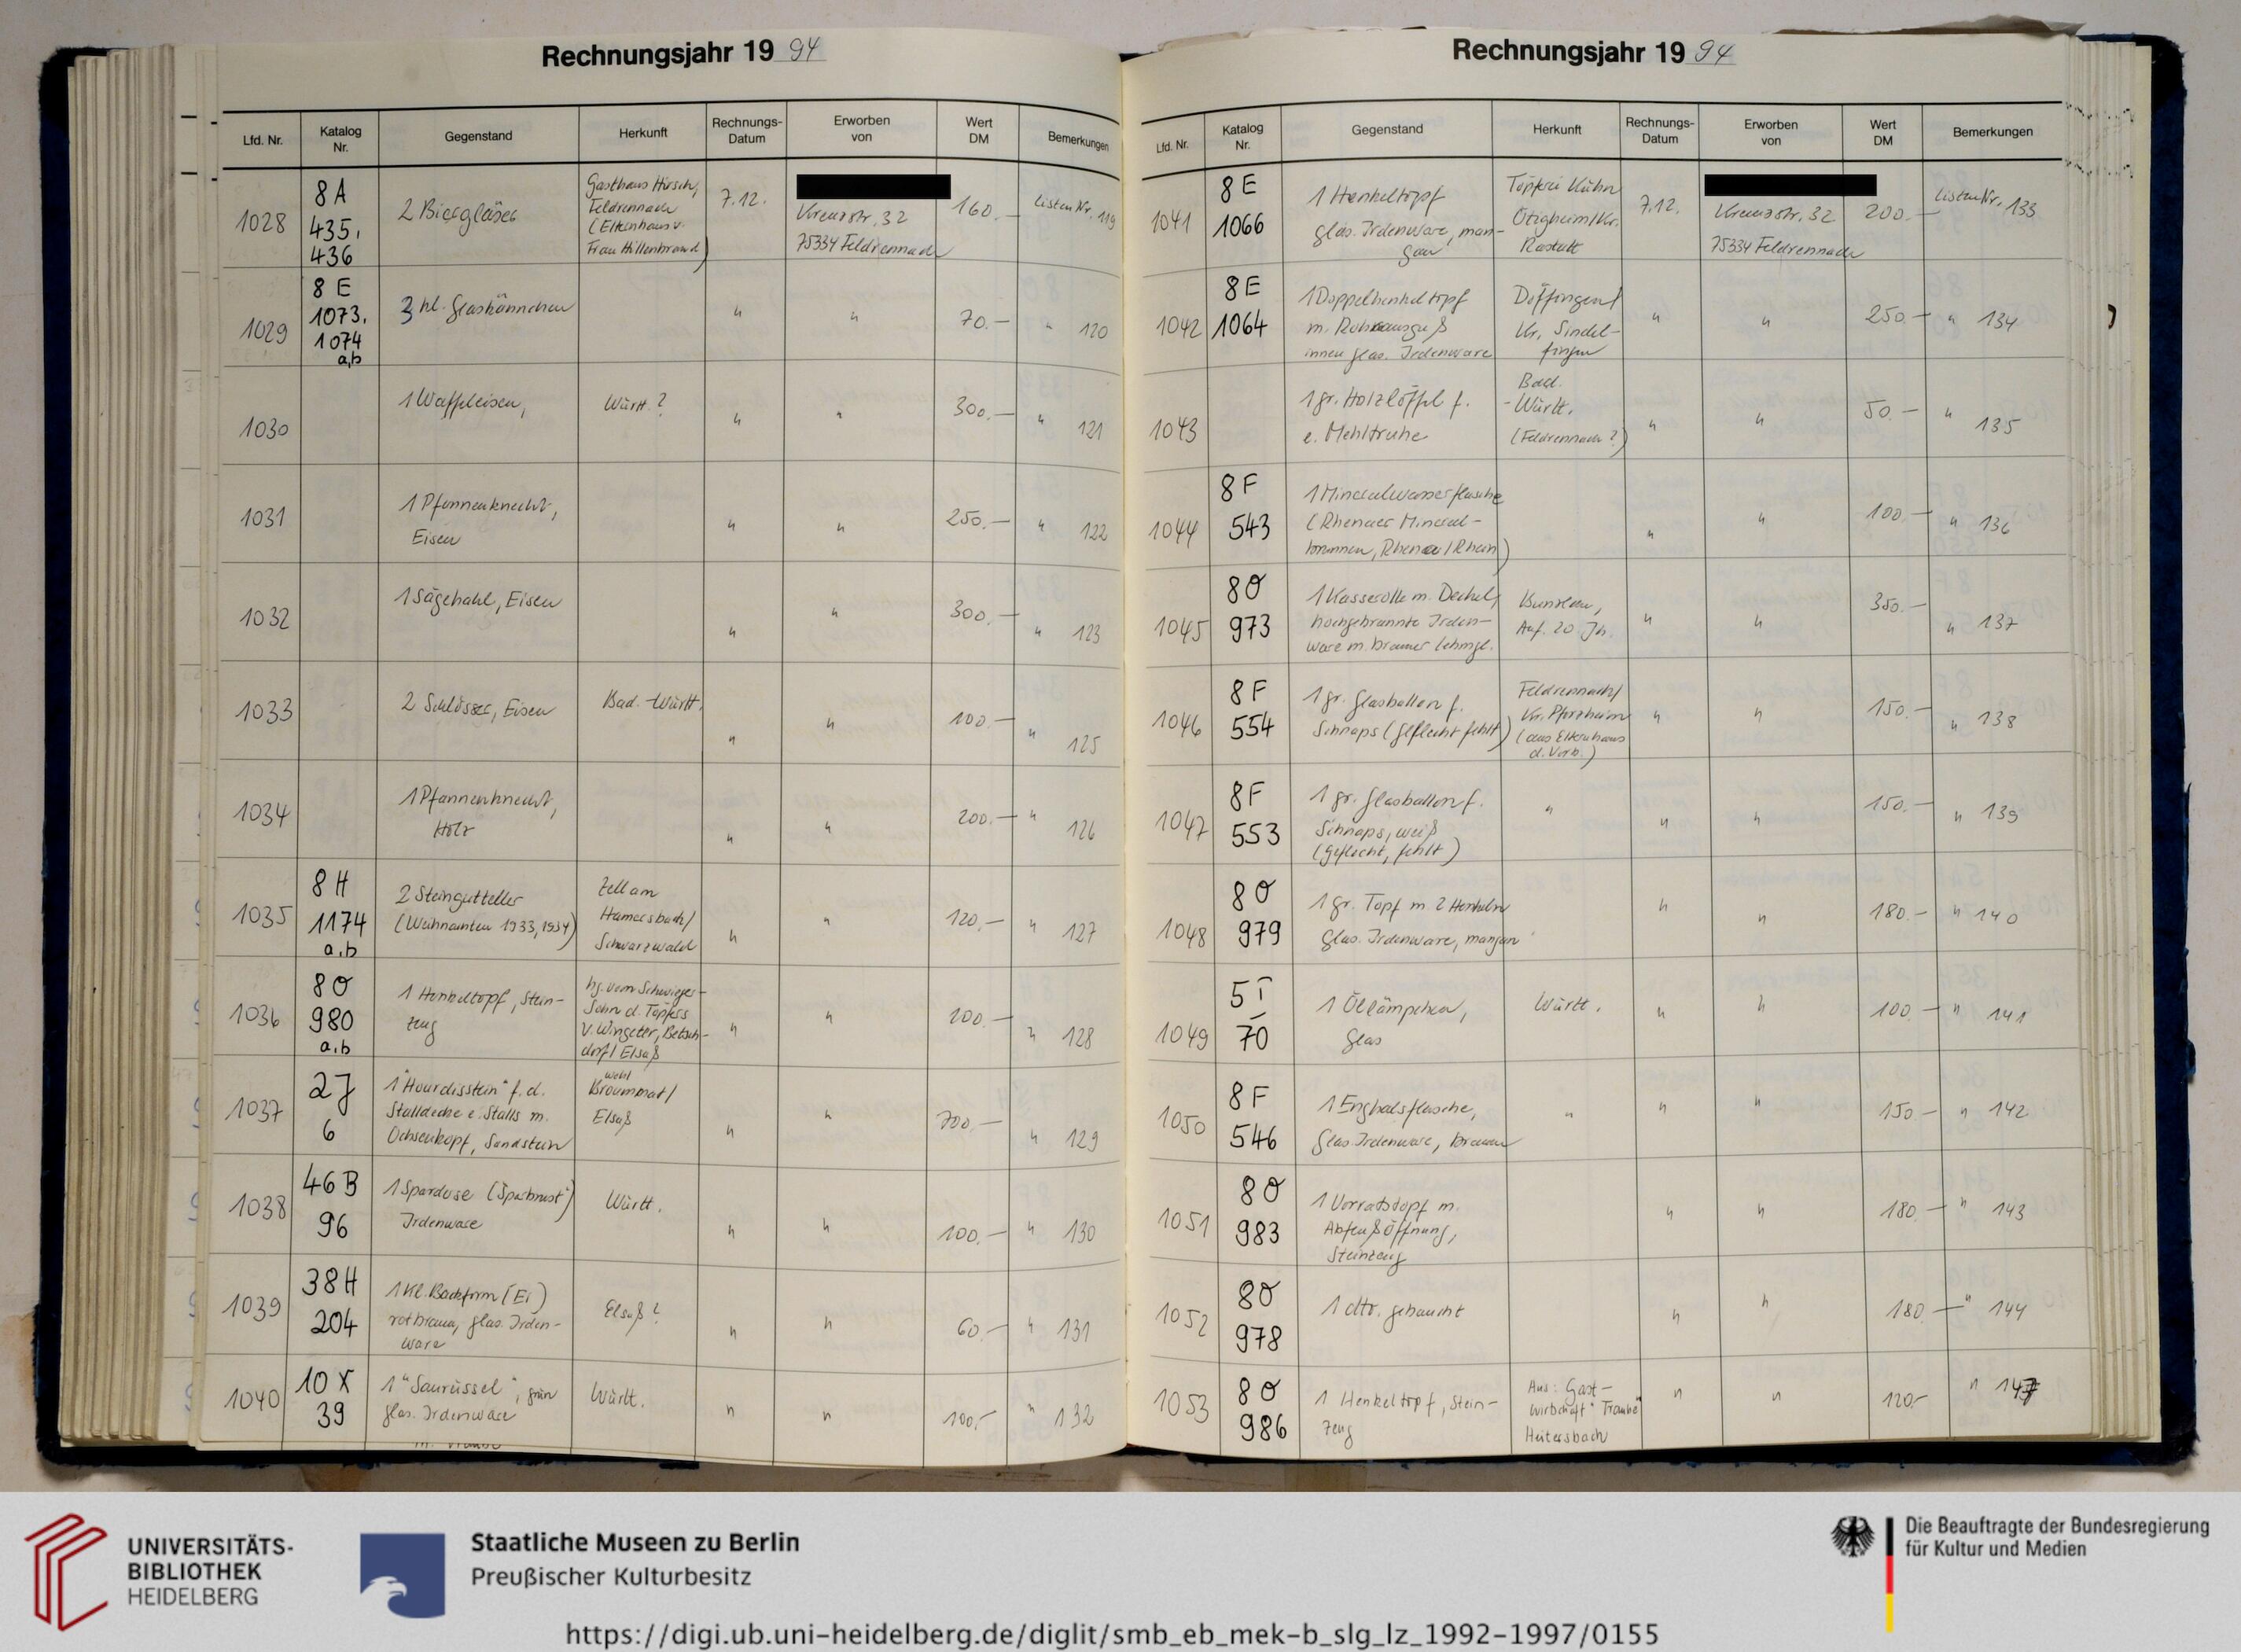 Rechnungsjahr 19 94
Lfd. Nr. Katalog Nr. Gegenstand Herkunft Rechnungs-Datum Erworben von Wert DM Bemerkungen
1028
8 A
435,
436
2 Biergläser
Gasthaus Hirsch,
Feldrennach
(Elternhaus v.
Frau Hillenbrand)
7.12.
Kreuzstr. 32
75334 Feldrennach
160.—
Listen Nr. 119
1029
8 E
1073,
1074
a,b
3 kl. Glaskännchen
" "
70.—
" 120
1030
1 Waffeleisen,
Württ.?
" "
300.—
" 121
1031
1 Pfannenknecht,
Eisen
" "
250.—
" 122
1032
1 Sägehahl, Eisen
" "
300.—
" 123
1033
2 Schlösser, Eisen
Bad.-Württ.
" "
100.—
" 125
1034
1 Pfannenknecht,
Holz
" "
200.—
" 126
1035
8 H
1174
a,b
2 Steingutteller
(Weihnachten 1933, 1934)
Zell am
Hamersbach/
Schwarzwald
" "
120.—
" 127
1036
8 O
980
a,b
1 Henkeltopf, Stein-
zeug
hg. vom Schwieger-
Sohn d. Töpfers
V. Wingeter, Betsch-
dorf/ Elsaß
" "
200.—
" 128
1037
2 J
6
1 "Hourdisstein" f. d.
Stalldecke e. Stalls m.
Ochsenkopf, Sandstein
wohl
Broummat/
Elsaß
" "
700.—
" 129
1038
46 B
96
1 Spardose
Irdenware
Württ.
" "
100.—
" 130
1039
38 H
204
1 kl. Backform (Ei)
rotbraun, glas. Irden-
ware
Elsaß?
" "
60.—
" 131
1040
10 X
39
1 "Saurüssel", grün
glas. Irdenware
Württ.
" "
100,-
" 132
Rechnungsjahr 19 94
Lfd. Nr. Katalog Nr. Gegenstand Herkunft Rechnungs-Datum Erworben von Wert DM Bemerkungen
1041
8 E
1066
1 Henkeltopf
glas. Irdenware, man-
gan
Töpferei Kühn
Ötigheim/Kr.
Rastatt
7.12.
Kreuzstr. 32
75334 Feldrennach
200.—
Listen Nr. 133
1042
8 E
1064
1 Doppelhenkeltopf
m. Rohrausguß
innen glas. Irdenware
Döffingen/
Kr. Sindel-
fingen
" "
250.—
" 134
1043
1 gr. Holzlöffel f.
e. Mehltruhe
Bad.
-Württ.
(Feldrennach?)
" "
50.—
" 135
1044
8 F
543
1 Mineralwasserflasche
(Rhenser Mineral-
brunnen, Rhens/Rhein)
" "
100.—
" 136
1045
8 O
973
1 Kasserolle m. Deckel,
hochgebrannte Irden-
ware m. brauner Lehmgl.
Bunzlau,
Anf. 20. Jh.
" "
350.—
" 137
1046
8 F
554
1 gr. Glasballon f.
Schnaps (Geflecht fehlt)
Feldrennach/
Kr. Pforzheim
(aus Elternhaus
d. Vorb.)
" "
150.—
" 138
1047
8 F
553
1 gr. Glasballon f.
Schnaps, weiß
(Geflecht, fehlt)
"
" "
150.—
" 139
1048
8 O
979
1 gr. Topf m. 2 Henkeln
glas. Irdenware, mangan
" "
180.—
" 140
1049
5 I
70
1 Öllämpchen,
Glas
Württ.
" "
100.—
" 141
1050
8 F
546
1 Enghalsflasche,
glas. Irdenware, braun
"
" "
150—
" 142
1051
8 O
983
1 Vorratstopf m.
Abfeußöffnung,
Steinzeug
" "
180.—
" 143
1052
8 O
978
1 dto. gebaucht
" "
180.—
" 144
1053
8 O
986
1 Henkeltopf, Stein-
zeug
Aus: Gast-
wirtschaft "Traube"
" "
120,-
" 147
UNIVERSITÄTS-
BIBLIOTHEK
HEIDELBERG
Staatliche Museen zu Berlin
Preußischer Kulturbesitz
Die Beauftragte der Bundesregierung
für Kultur und Medien
https://digi.ub.uni-heidelberg.de/diglit/smb_eb_mek-b_slg_lz_1992-1997/0155